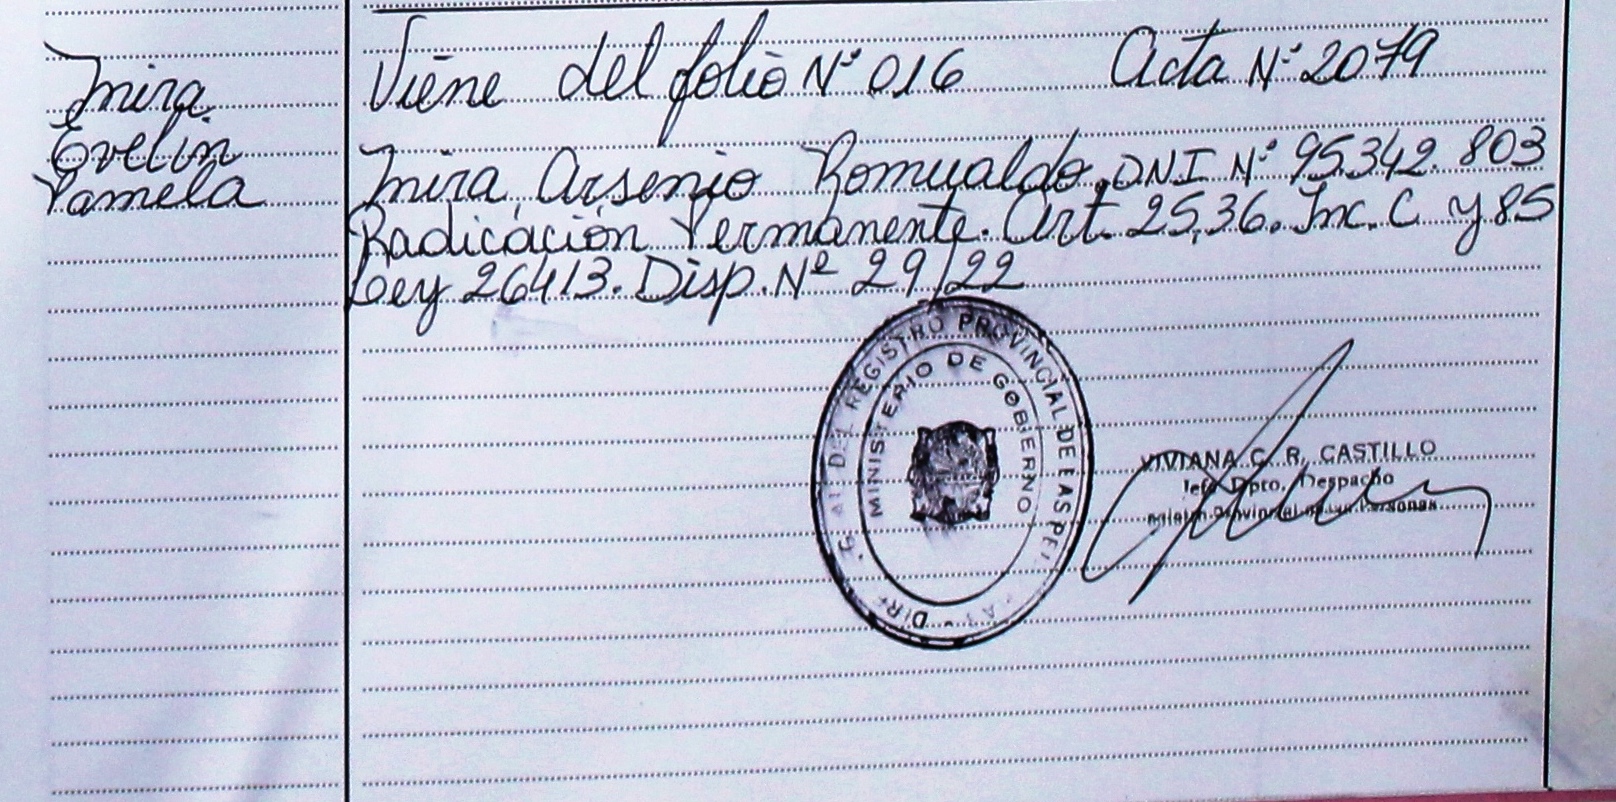 Mira
Evelin
Pamela
Viene del folio N° 016 Acta N° 2079
Mira, Arsenio Romualdo, DNI N° 95.342.803
Radicación Permanente. Art. 25,36. Inc. C y 85
Ley 26413. Disp. Nº 29/22
DEL REGISTRO PROVINCIAL DE LAS PE
MINISTERIO DE GOBIERNO
VIVIANA C. R. CASTILLO
Jefe Dpto. Despacho
Personas